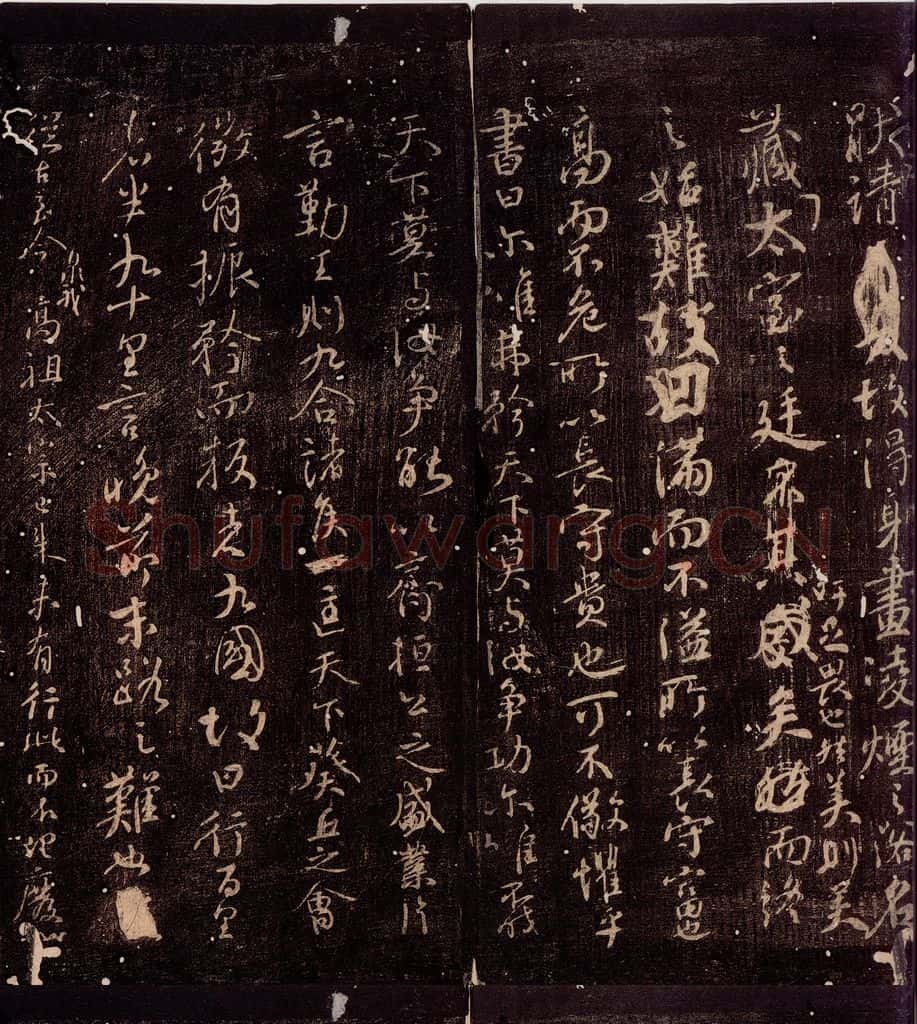 厭請故得身畫凌煙之閣名
藏太室之廷矣而終
吁足畏也然美則美
之始難故曰滿而不溢所以長守富
高而不危所以長守貴也可不儆懼乎
書曰爾唯弗矜天下莫與汝爭功爾唯不伐
天下莫與汝爭能以齊桓公之盛業片
言勤王則九合諸侯一匡天下葵丘之會
微有振矜而叛者九國故曰行百里
者半九十里言晚節末路之難也
從古至今暨我高祖太宗已來未有行此而不理廢
Shufawang.CN